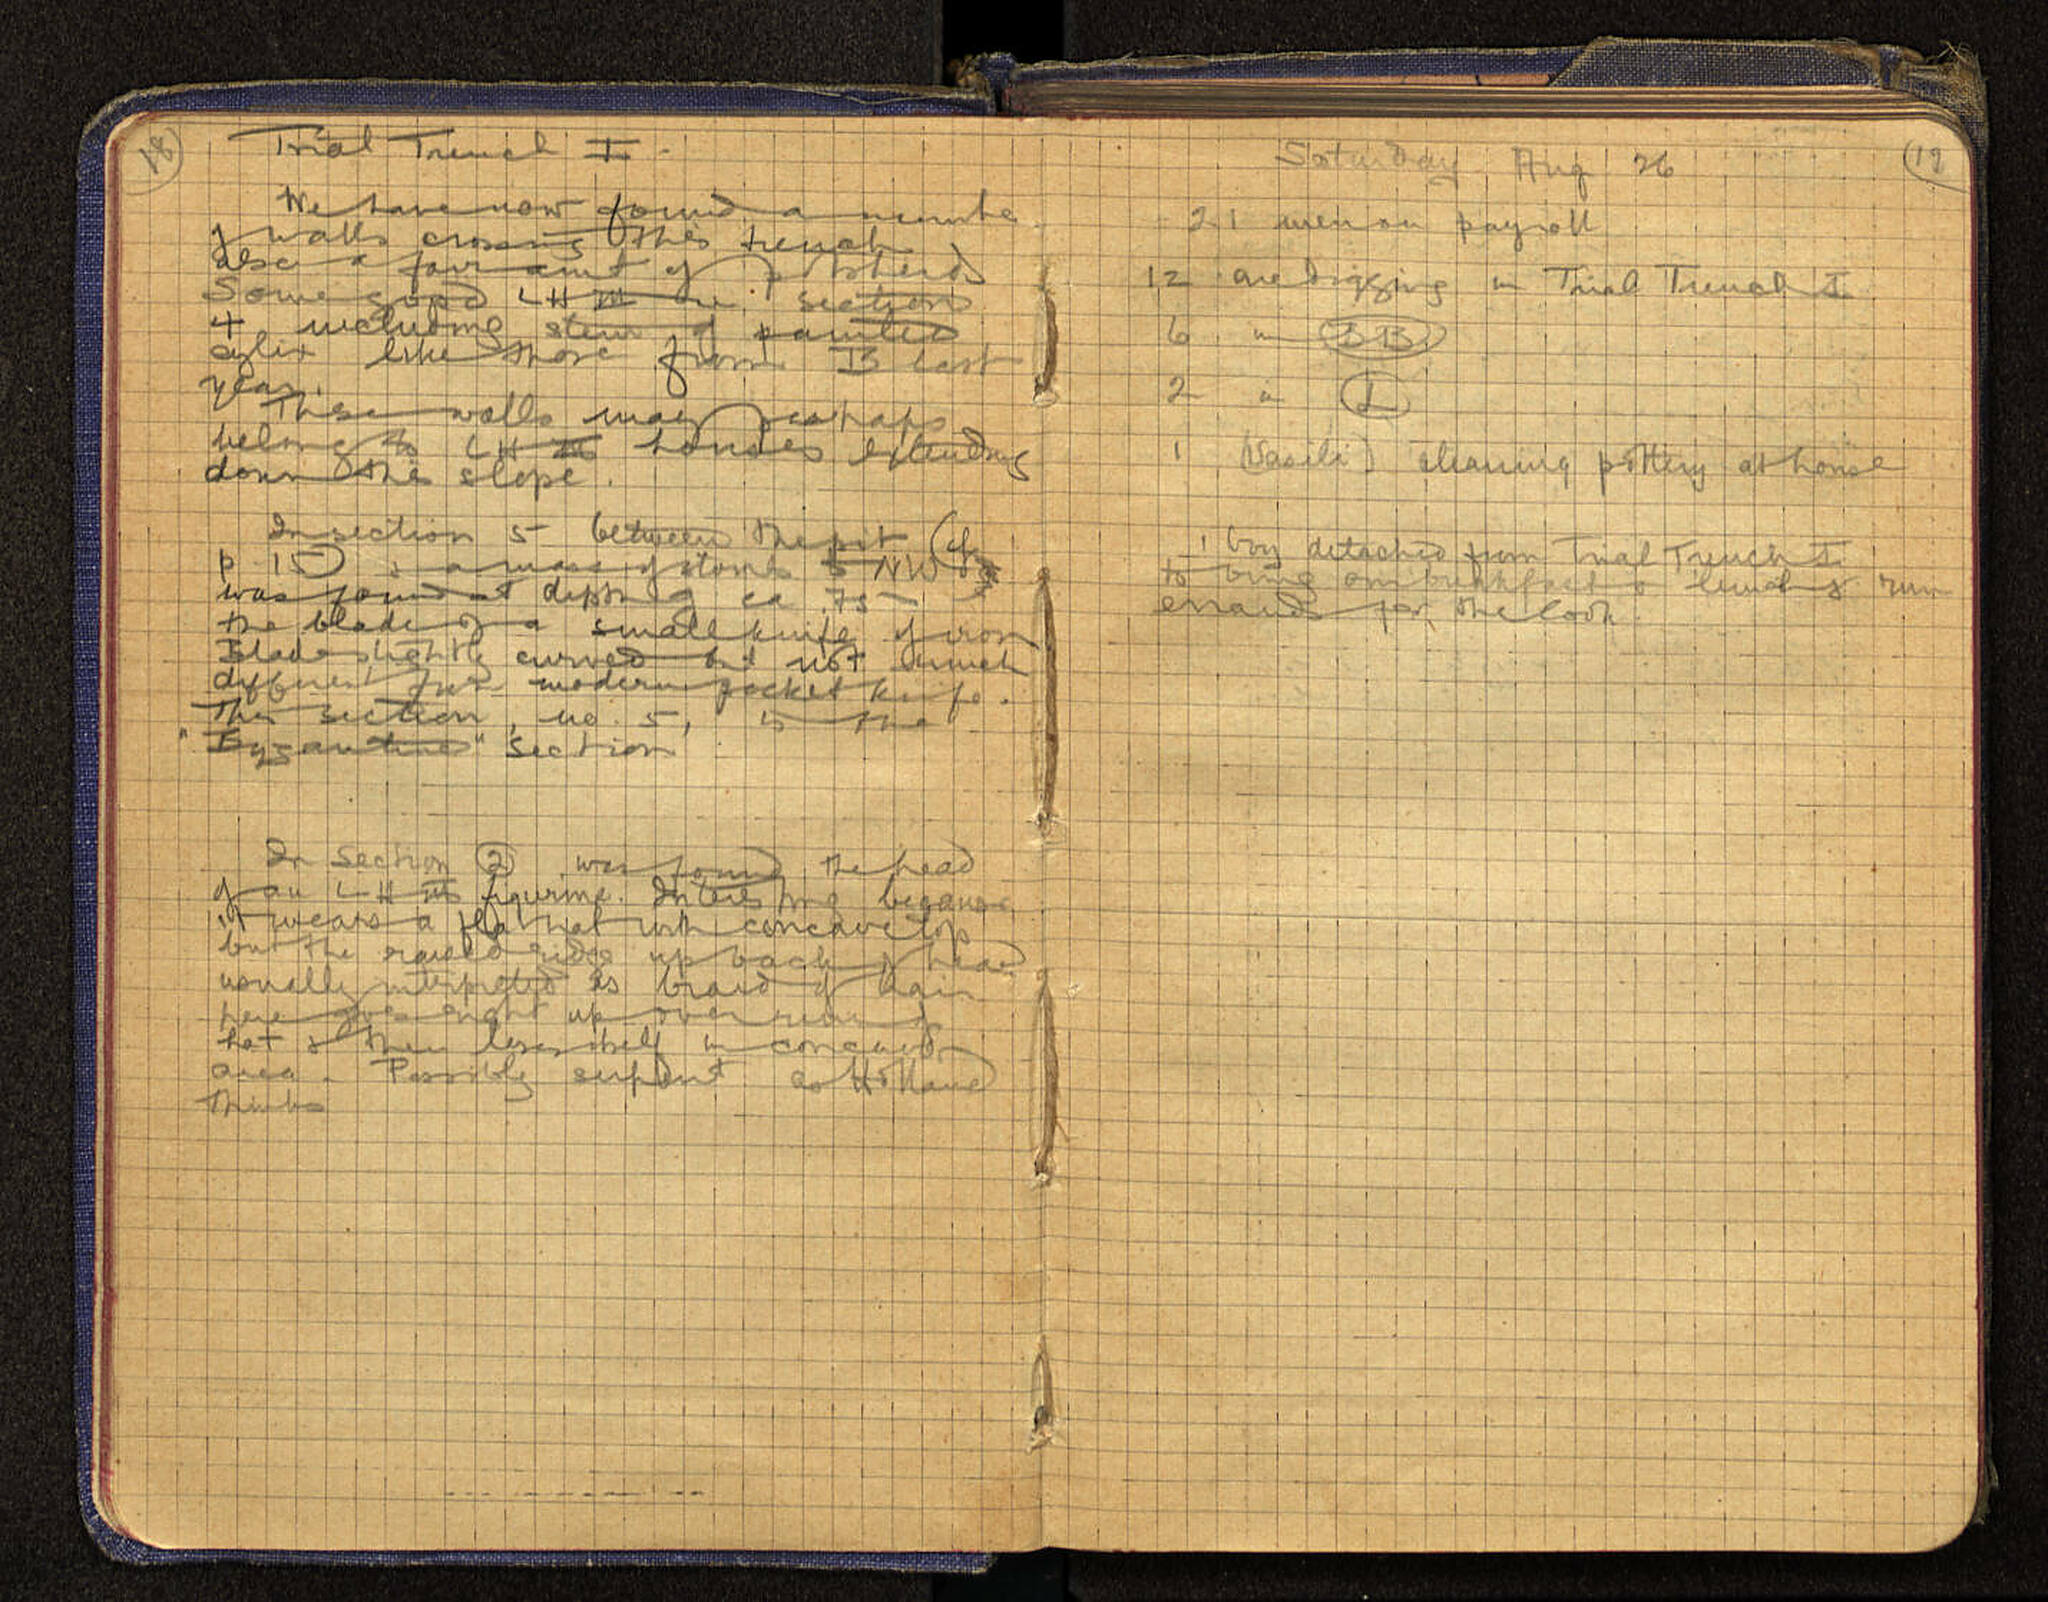 18
Trial Trench I.
We have now found a number
of walls crossing this trench
also a fair amt of potsherds
Some good LH III in section
4 including stem of painted
cylix like those from B last
year.
These walls may perhaps
belong to LH III houses extending
down the slope.
In section 5 between the pit (cf
p 15) & a mass of stones to NW
was found at depth of ca .75
the blade of a small knife of iron
Blade slightly curved but not much
different from modern pocket knife.
This section, no. 5, is the
"Byzantine" section
In section 2 was found the head
of an LH III figurine. Interesting because
it wears a flat hat with concave top
but the raised ridge up back of head
usually interpreted as braid of hair
here goes right up over rim of
hat & then loses itself in concave
area. Possibly serpent as Holland
thinks
19
Saturday Aug 26
21 men on payroll
12 are digging in Trial Trench I
6 in BB
2 in L
1 (Vasili) cleaning pottery at house
1 boy detached from Trial Trench I
to bring our breakfast & lunch & run
errands for the cook.